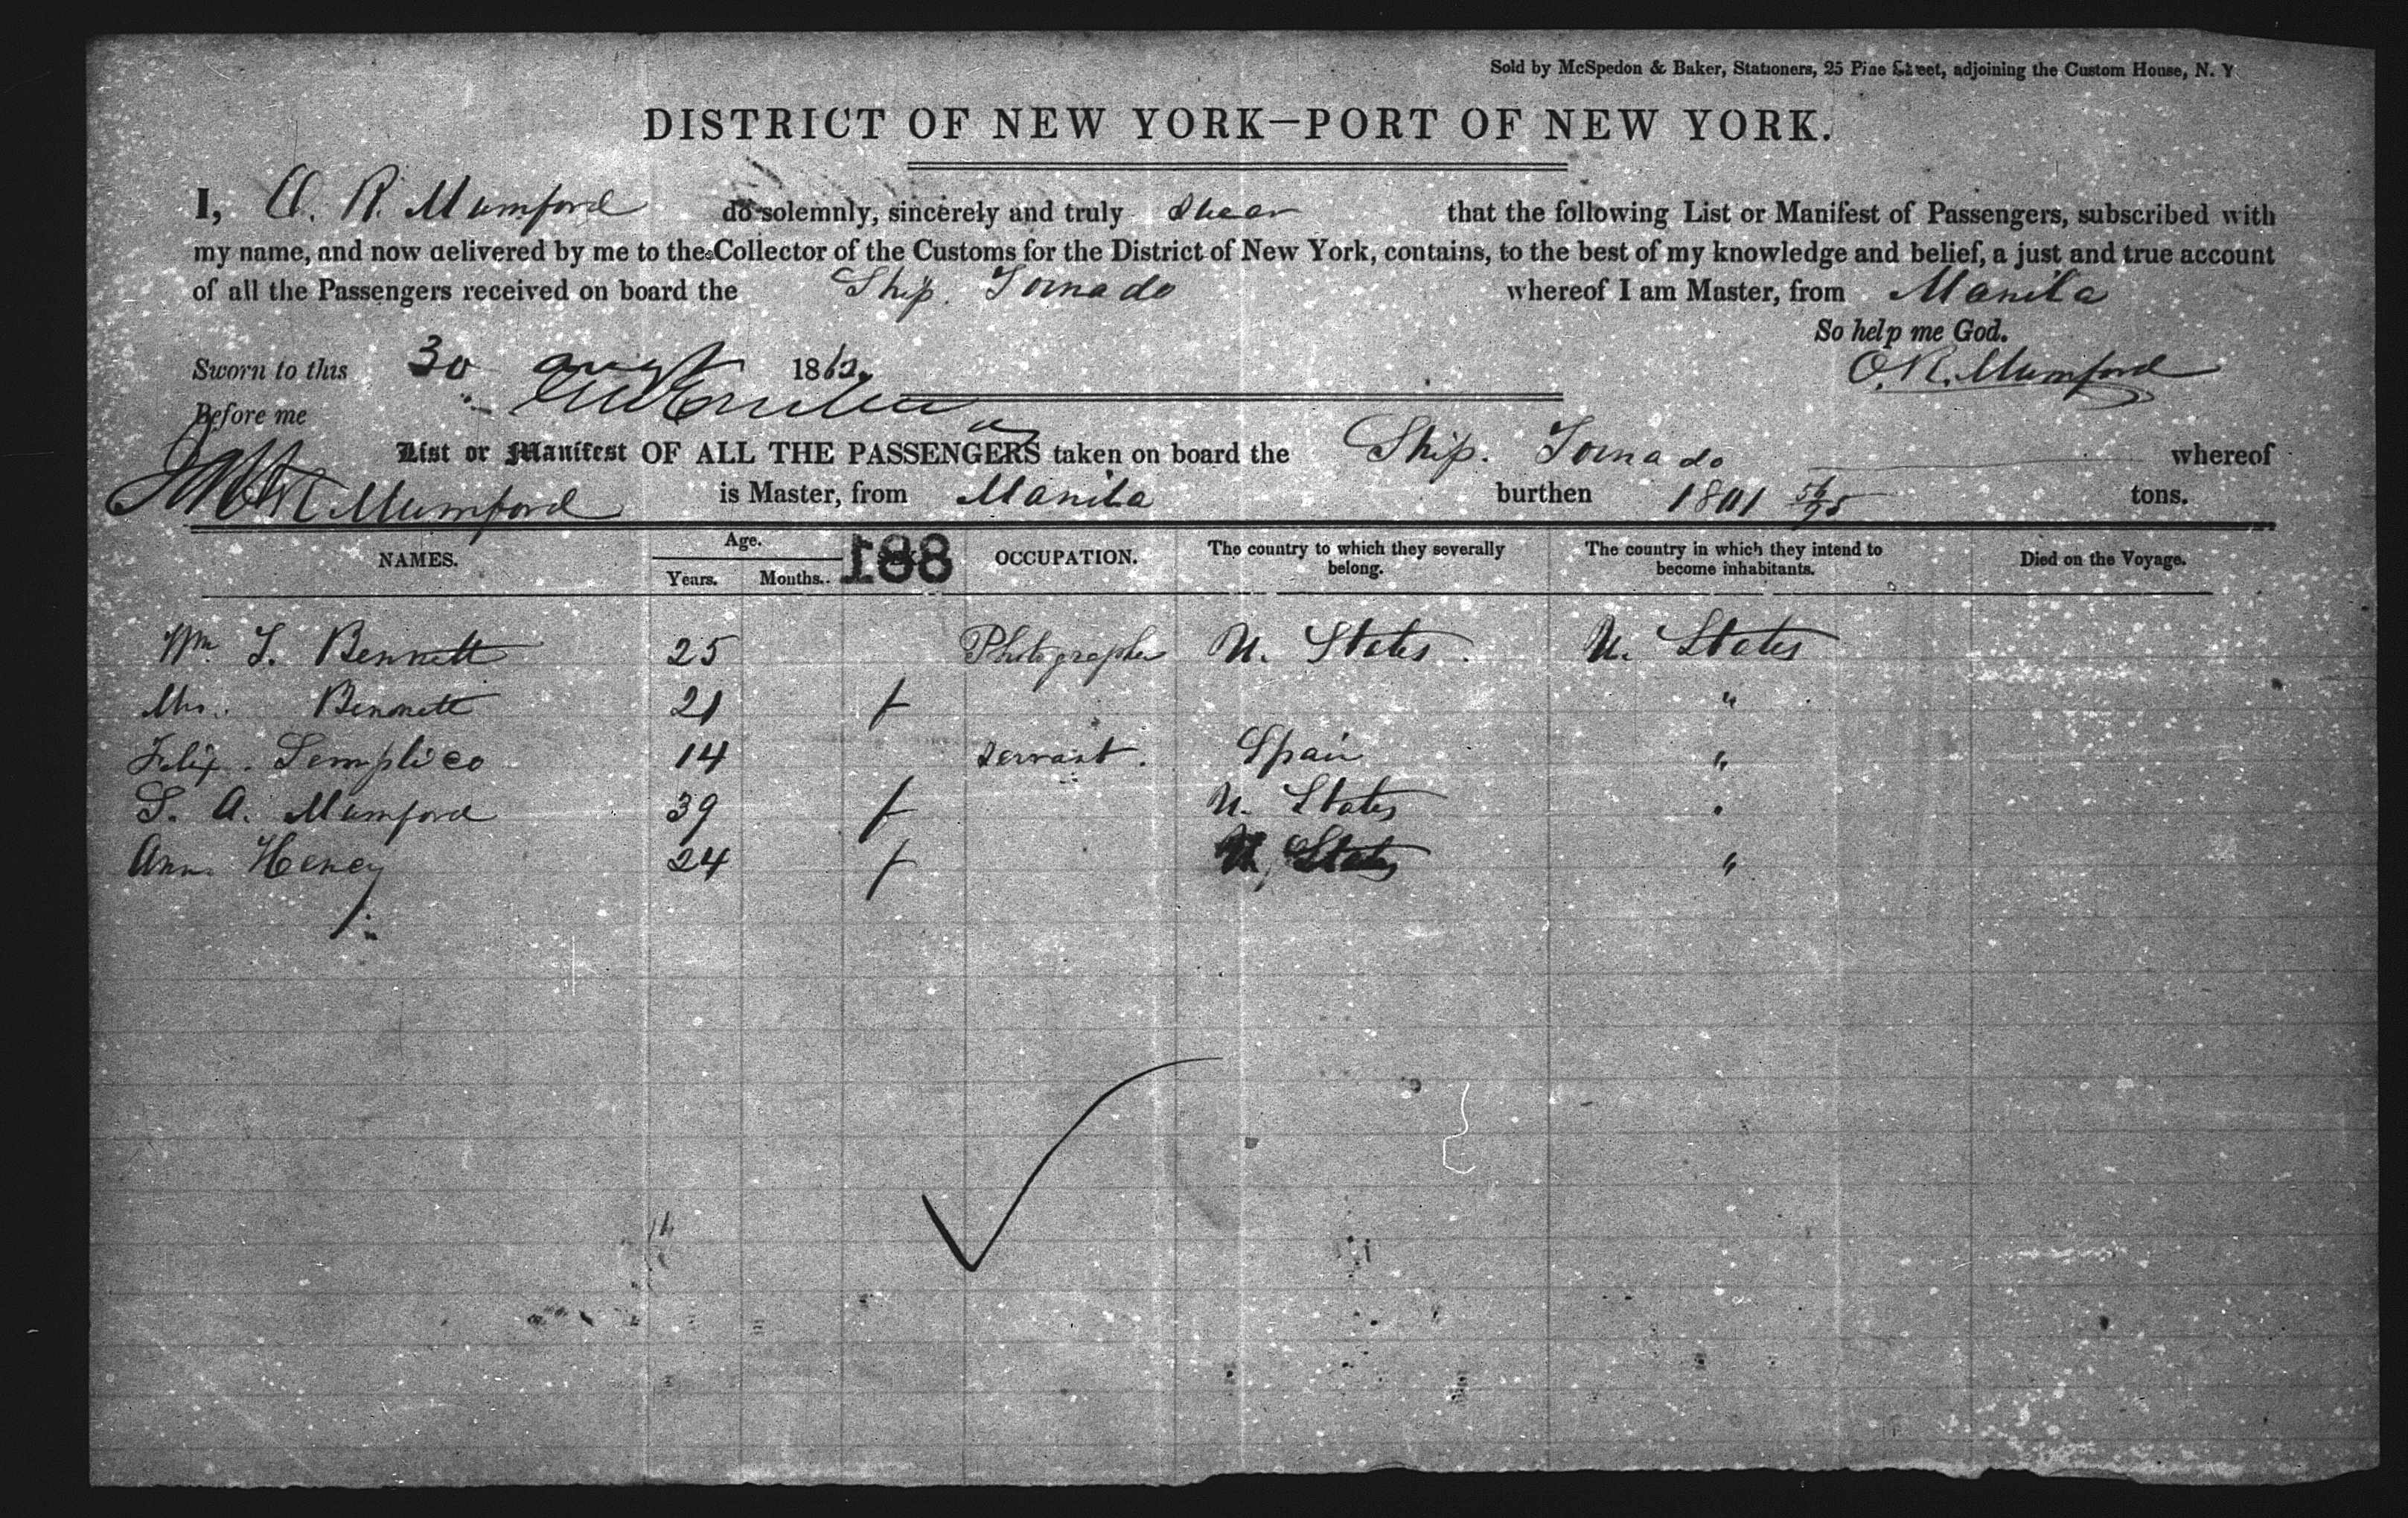 Sold by McSpedon & Baker, Stationers, 25 Pine Street, adjoining the Custom House, N. Y
DISTRICT OF NEW YORK—PORT OF NEW YORK.
I, O. R. Mumford do solemnly, sincerely and truly swear that the following List or Manifest of Passengers, subscribed with
my name, and now delivered by me to the Collector of the Customs for the District of New York, contains, to the best of my knowledge and belief, a just and true account
of all the Passengers received on board the Ship. Tornado whereof I am Master, from Manila
So help me God.
Sworn to this 30 augt 1862. O. R. Mumford
Before me
List or Manifest OF ALL THE PASSENGERS taken on board the Ship. Tornado whereof
O R Mumford is Master, from Manila burthen 1801 tons.
NAMES. Age. Years. Months. 188 OCCUPATION. The country to which they severally belong. The country in which they intend to become inhabitants. Died on the Voyage.
Wm. T. Bennett 25 Photographer U. States. U. States
Mrs. Bennett 21 f "
Felix. Semplico 14 servant. Spain "
S. A. Mumford 39 f U. States "
Ann Heney 24 f U, States "